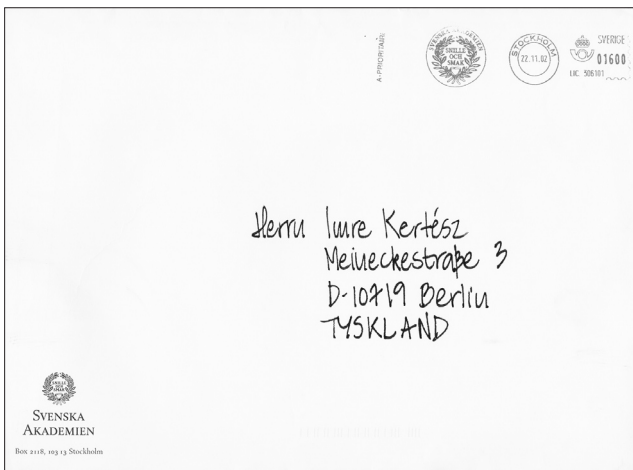 A-PRIORITAIRE
SVENSKA AKADEMIEN
SNILLE
OCH
SMAK
STOCKHOLM
22.11.02
SVERIGE
01600
LIC. 506101
Herrn Imre Kertész
Meineckestraße 3
D-10719 Berlin
TYSKLAND
SNILLE
OCH
SMAK
SVENSKA
AKADEMIEN
Box 2118, 103 13 Stockholm